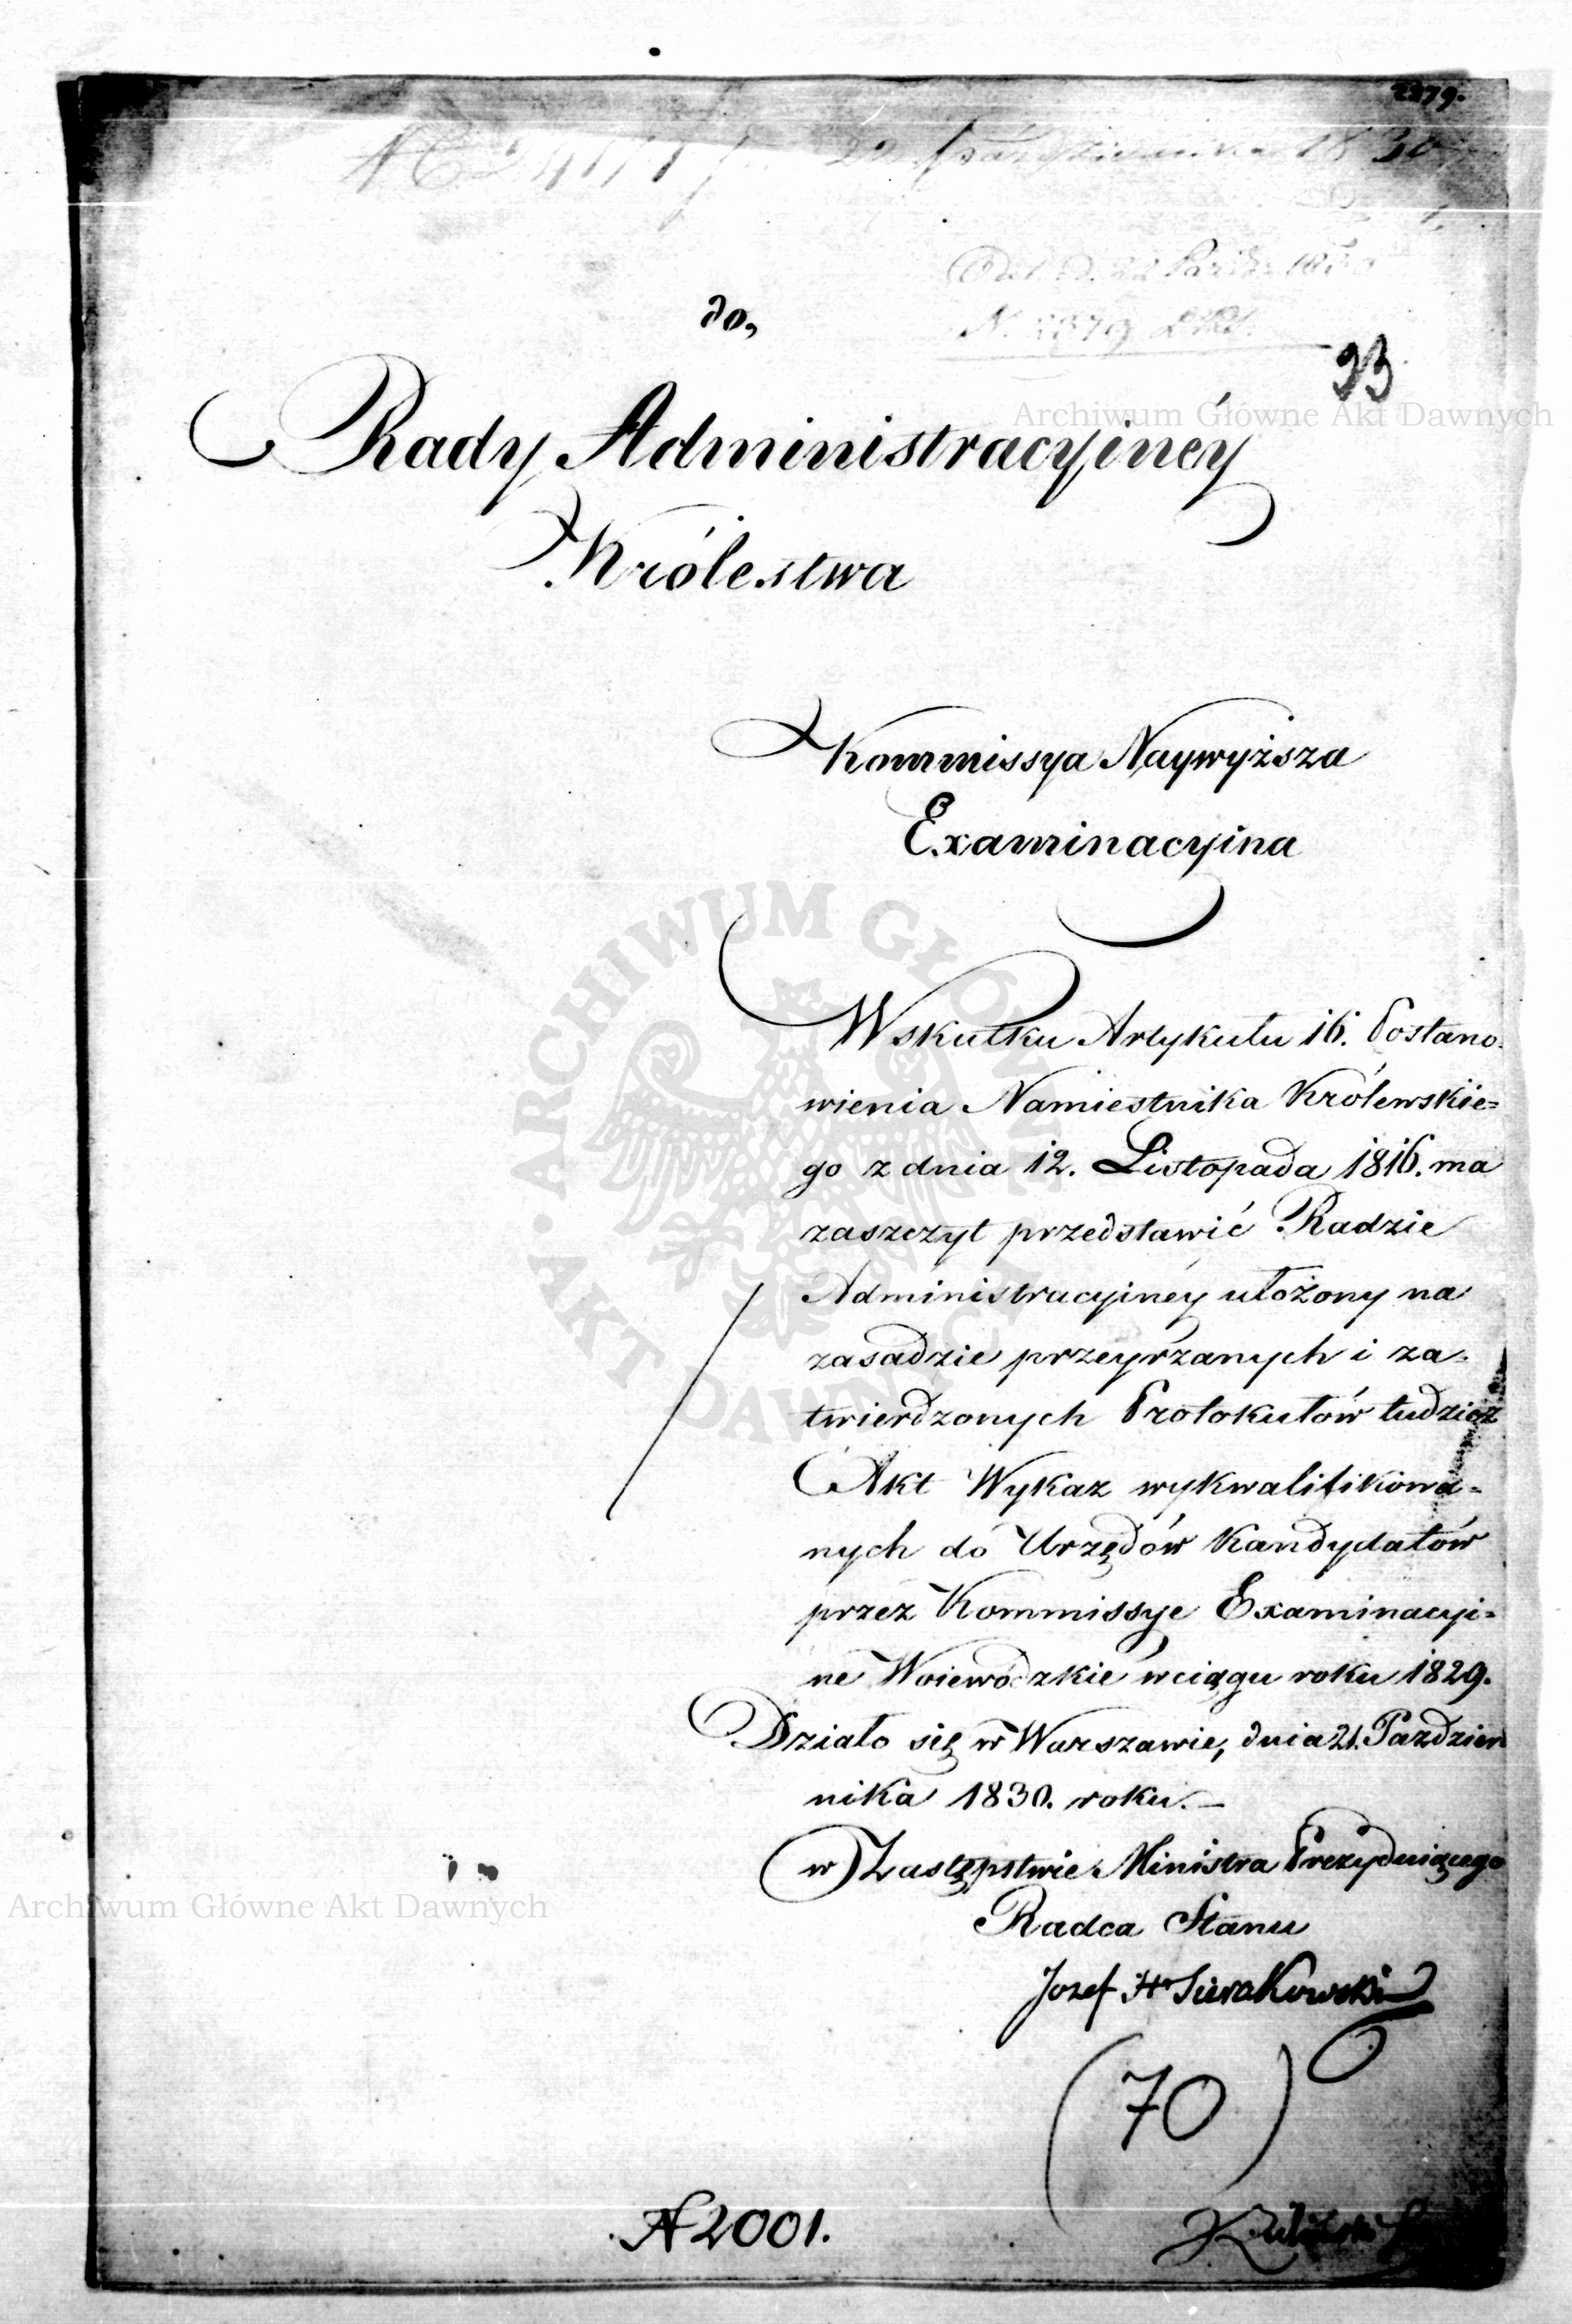 2379.
22 Października 1830
Od. d. 22 Paźdz. 1830
N. 2379
93
do,
Rady Administracyiney
Królestwa
Kommissya Naywyższa
Examinacyina
W skutku Artykułu 16. Postano-
wienia Namiestnika Królewskie=
go z dnia 12. Listopada 1816. ma
zaszczyt przedstawić Radzie
Administracyiney ułożony na
zasadzie przeyrzanych i za-
twierdzonych Protokułów tudzież
Akt Wykaz wykwalifikowa=
nych do Urzędów Kandydatów
przez Kommissye Examinacyi=
ne Woiewódzkie w ciągu roku 1829.
Działo się w Warszawie, dnia 21. Paździer
nika 1830. roku. —
w Zastępstwie Ministra Prezyduiącego
Radca Stanu
Jozef Hr Sierakowski
(70)
N 2001.
Archiwum Główne Akt Dawnych
Archiwum Główne Akt Dawnych
ARCHIWUM GŁÓWNE
AKT DAWNYCH